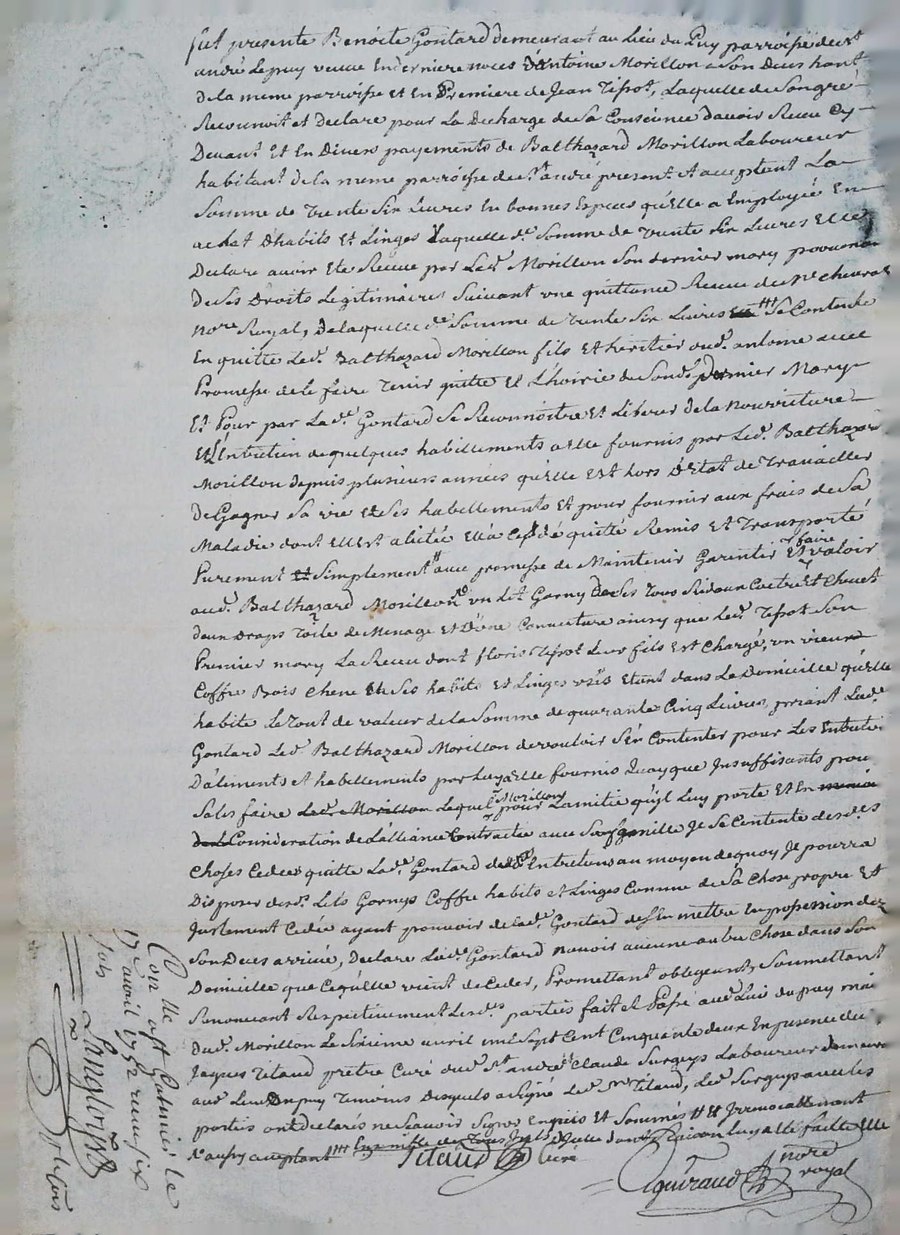 fut presente Benoite Gontard demeurant au Lieu du Puy parroisse de st
andré Le puy veuve En derniere noces d'antoine Morillon a Son Deces hant
de la meme parroisse et En Premiere de Jean Tissot, Laquelle de Songré
Reconnoit et Declare pour La Decharge de Sa Consience d'avoir Receu Cy
Devant Et En Divers payements de Balthazard Morillon Laboureur
habitant de la meme parroisse de st andré present Et acceptent La
Somme de Trente Six Livres En bonnes Especes quElle a Employée En
achat D'habits Et Linges Laquelle de. Somme de Trente Six Livres Elle
Declare avoir Eté Receue par Led. Morillon Son dernier mary provenan
de Ses Droits Legitimaires Suivant une quittance Receue de Me
nore Royal, De laquelle de Somme de Trente Six Livres Se Contente
En quitte Led. Balthazard Morillon fils Et heritier aud. antoine avec
Promesse de le faire Tenir quitte Et L'hoirie de Sond. dernier Mary
Et Pour par La de. Gontard Se Reconnoitre Et Liberer de la nourriture
Et L'Entretien de quelques habillements a elle fournis par Led. Balthazard
Morillon depuis plusieurs années qu'elle Est hors D'Etat de Travailler
de Gagner Sa vie Et Ses habillements Et pour fournir aux frais de Sa
Maladie dont Ell Est alitée Ell'a Cedé quité Remis Et Transporté
Purement Et Simplement avec promesse de Maintenir Garentir Et faire valoir
aud. Balthazard Morillon un Lit Garny de Ses Tours Rideaux Coetre Et Chevet
deux Draps Toile de Menage Et D'une Couverture ainsy que Led. Tissot Son
Premier mary La Receu dont floris Tissot Leur fils Est Chargé, un vieux
Coffre Bois Chene Et Ses habits Et Linges usés Etant dans Le Domicille qu'elle
habite Le Tout de valeur de la Somme de quarante Cinq Livres, priant Lad.
Gontard Led. Balthazard Morillon de vouloir S'en Contenter pour Les Entretien
D'aliments Et habillements par Luy a Elle fournis quoyque Insuffisants pour
Satisfaire Led. Morillon Lequel Morillon pour L'amitié qu'il Luy porte Et En
Consideration de L'alliance Contractée avec Sa famille Je Se Contente desd.
Choses Cedées quitte Lad. Gontard desd. Entretiens au moyen de quoy Je pourra
Disposer desd. Lits Garnys Coffre habits Et Linges Comme de Sa Chose propre Et
Justement Cedée ayant pouvoir de Lad. Gontard de S'En mettre En possession dez
Son Deces arrivé, Declare Lade. Gontard n'avoir aucune autre Chose dans Son
Domicille que Ce qu'elle vient de Ceder, Promettant obligeant, Soumettant
Renonceant Respectivement Lesd. parties fait Et Passé aud. Lieu du puy mai
dud. Morillon Le Sixieme avril mil Sept Cent Cinquante deux En presence de
Jaques Titaud prêtre Curé dud. St andré, Claude Surgys Laboureur demeura
aud. Lieu Du puy Temoins Desquels a Signé Led. Sr Titaud, Led. Surgys avec les
parties ont Declarés ne Scavoir Signer Enquis Et Sommés Et Irrevocablement
Titaud Curé
nore
royal
Con lle
17 avril 1752
Sols
Langlois